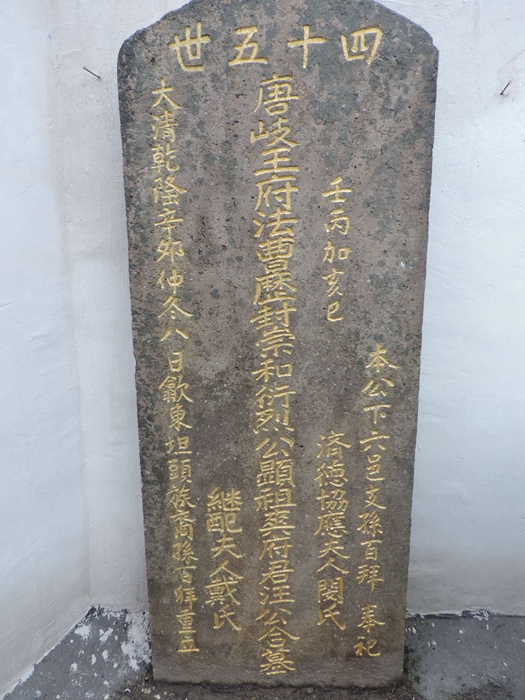 四十五世
本公下六邑支孫百拜奉祀
壬丙加亥巳
濟德協應夫人閔氏
唐岐王府法曹歷封崇和衍烈公顯祖爽府君汪公合墓
繼配夫人戴氏
大清乾隆辛卯仲冬八日歙東坦頭族裔孫百拜重立